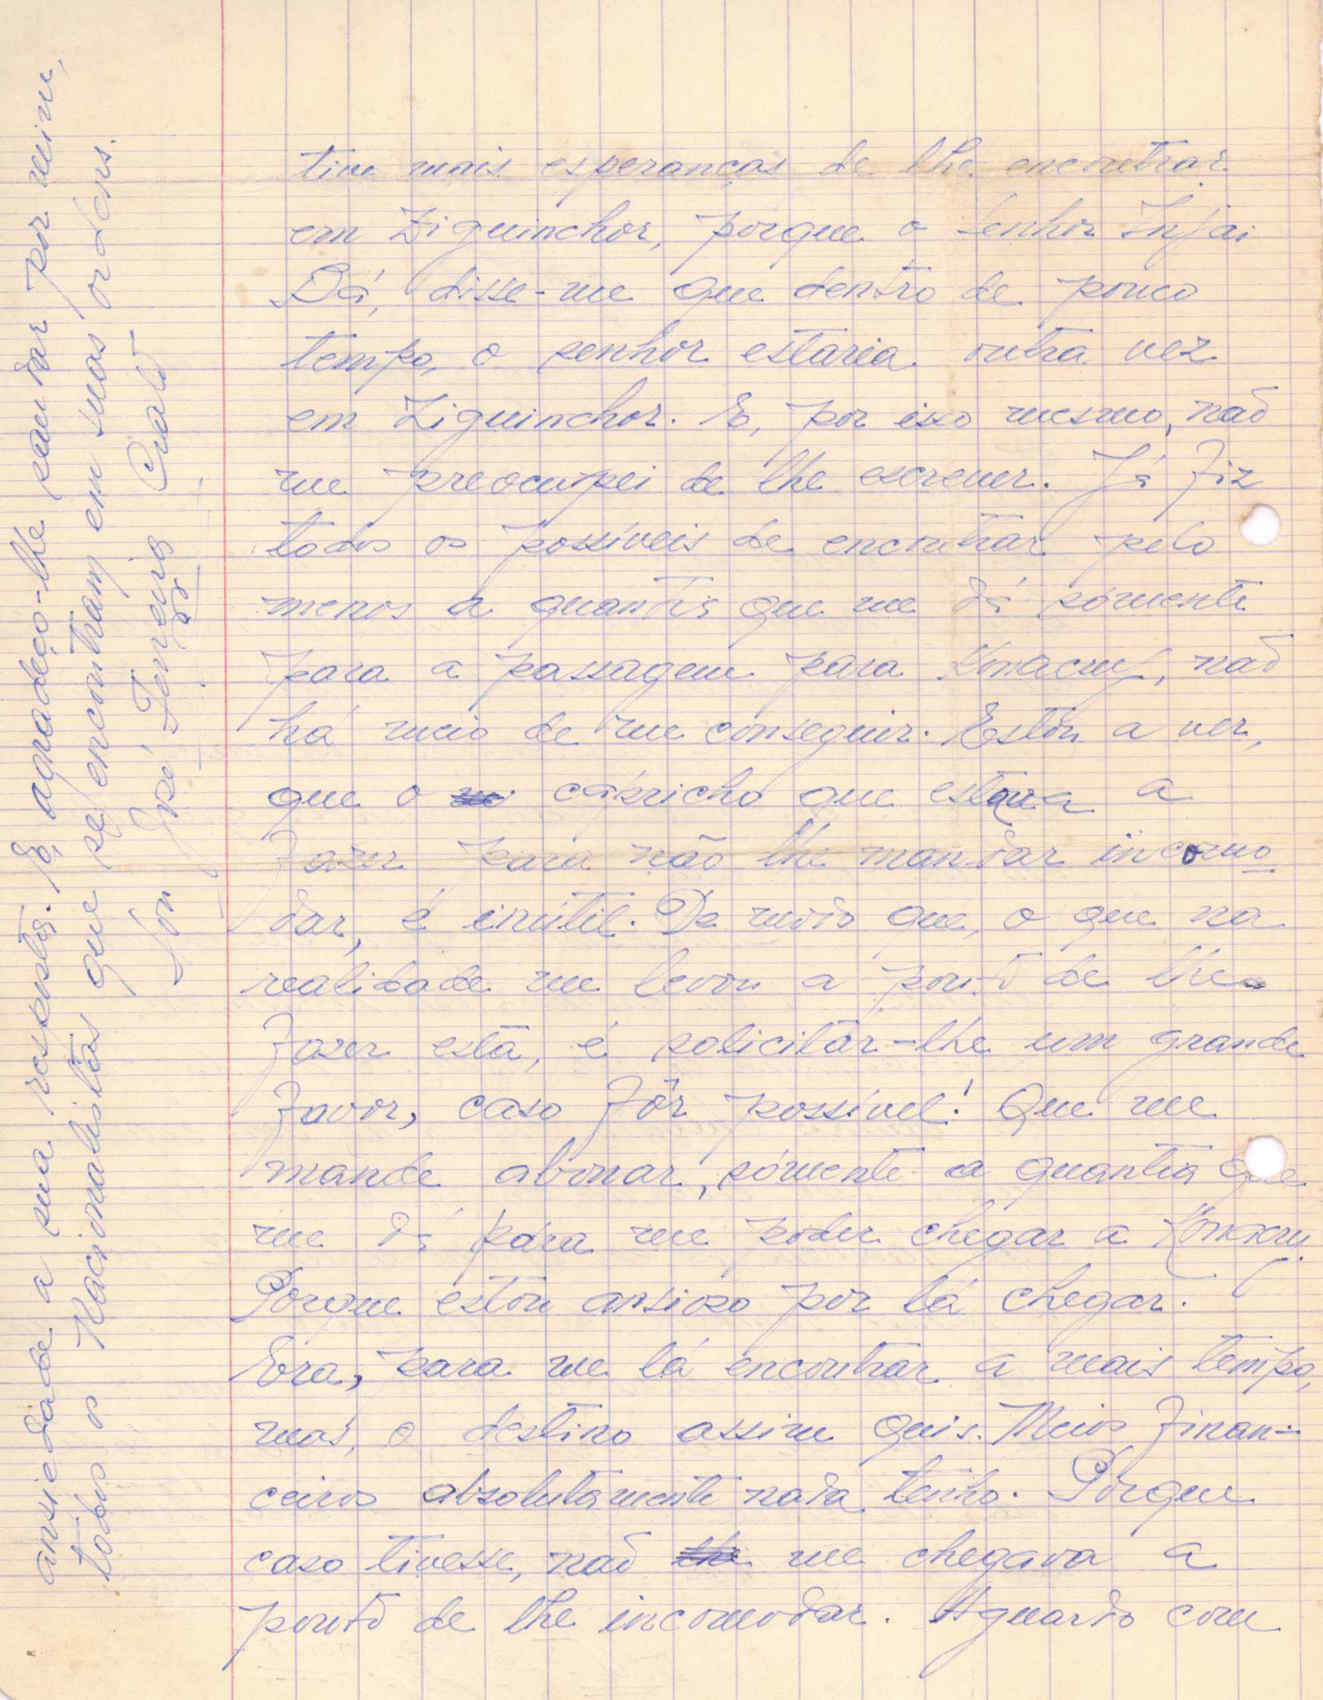 tive mais esperanças de lhe encontrar
em Ziguinchor, porque o senhor Injai
Bá, disse-me que dentro de pouco
tempo, o senhor estaria outra vez
em Ziguinchor. E, por isso mesmo, não
me preocupei de lhe escrever. Já fiz
todos os possíveis de encontrar pelo
menos a quantia que me dá sómente
para a passagem para Konacry, não
há meio de me conseguir. Estou a ver,
que o capricho que estava a
fazer para não lhe mandar incomo
dar, é inútil. De modo que, o que na
realidade me levou a ponto de lhe
fazer esta, é solicitar-lhe um grande
favor, caso fôr possível! Que me
mande abonar, sómente a quantia que
me dá para me poder chegar a Konacry.
Porque estou ansioso por lá chegar.
Era, para me lá encontrar a mais tempo,
mas, o destino assim quis. Meios finan-
ceiros absolutamente nada tenho. Porque
caso tivesse, não me chegava a
ponto de lhe incomodar. Aguardo com
ansiedade a sua resposta. E, agradeço-lhe saudar por mim,
todos os Nacionalistas que se encontram em suas ordens.
Sou José Ferreira